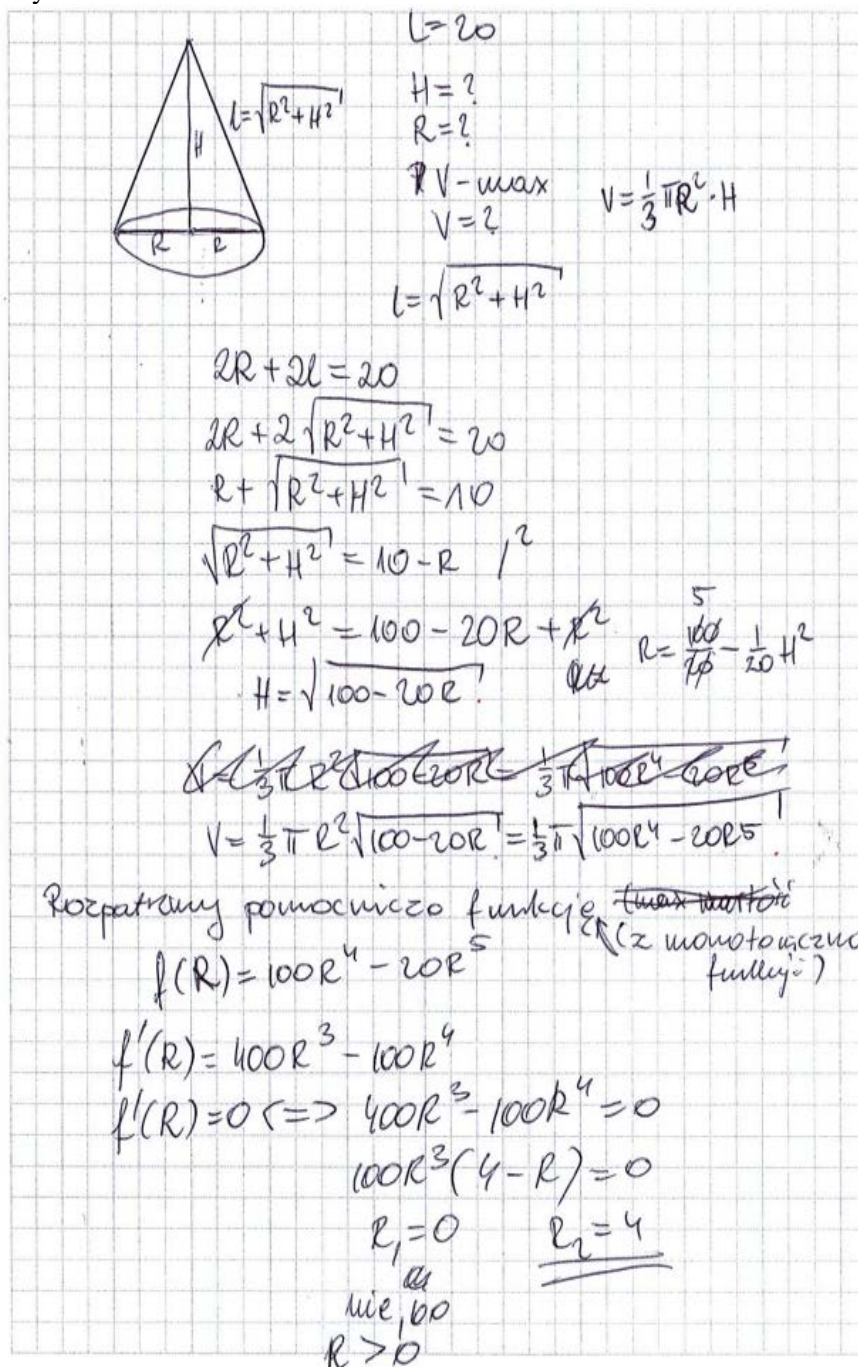 L=20
l=√(R²+H²)
H=?
H
R=?
V-max
V=1/3 πR²·H
V=?
R R
l=√(R²+H²)
2R+2l=20
2R+2√(R²+H²)=20
R+√(R²+H²)=10
√(R²+H²)=10-R /²
R²+H²=100-20R+R²
R=100/20-1/20 H²
5
H=√(100-20R)
V=1/3 πR²√(100-20R)=1/3 π√(100R⁴-20R⁵)
V=1/3 πR²√(100-20R)=1/3 π√(100R⁴-20R⁵)
Rozpatrzmy pomocniczo funkcję
(z monotoniczno
funkcji)
f(R)=100R⁴-20R⁵
f'(R)=400R³-100R⁴
f'(R)=0<=> 400R³-100R⁴=0
100R³(4-R)=0
R₁=0 R₂=4
nie, bo
R>0